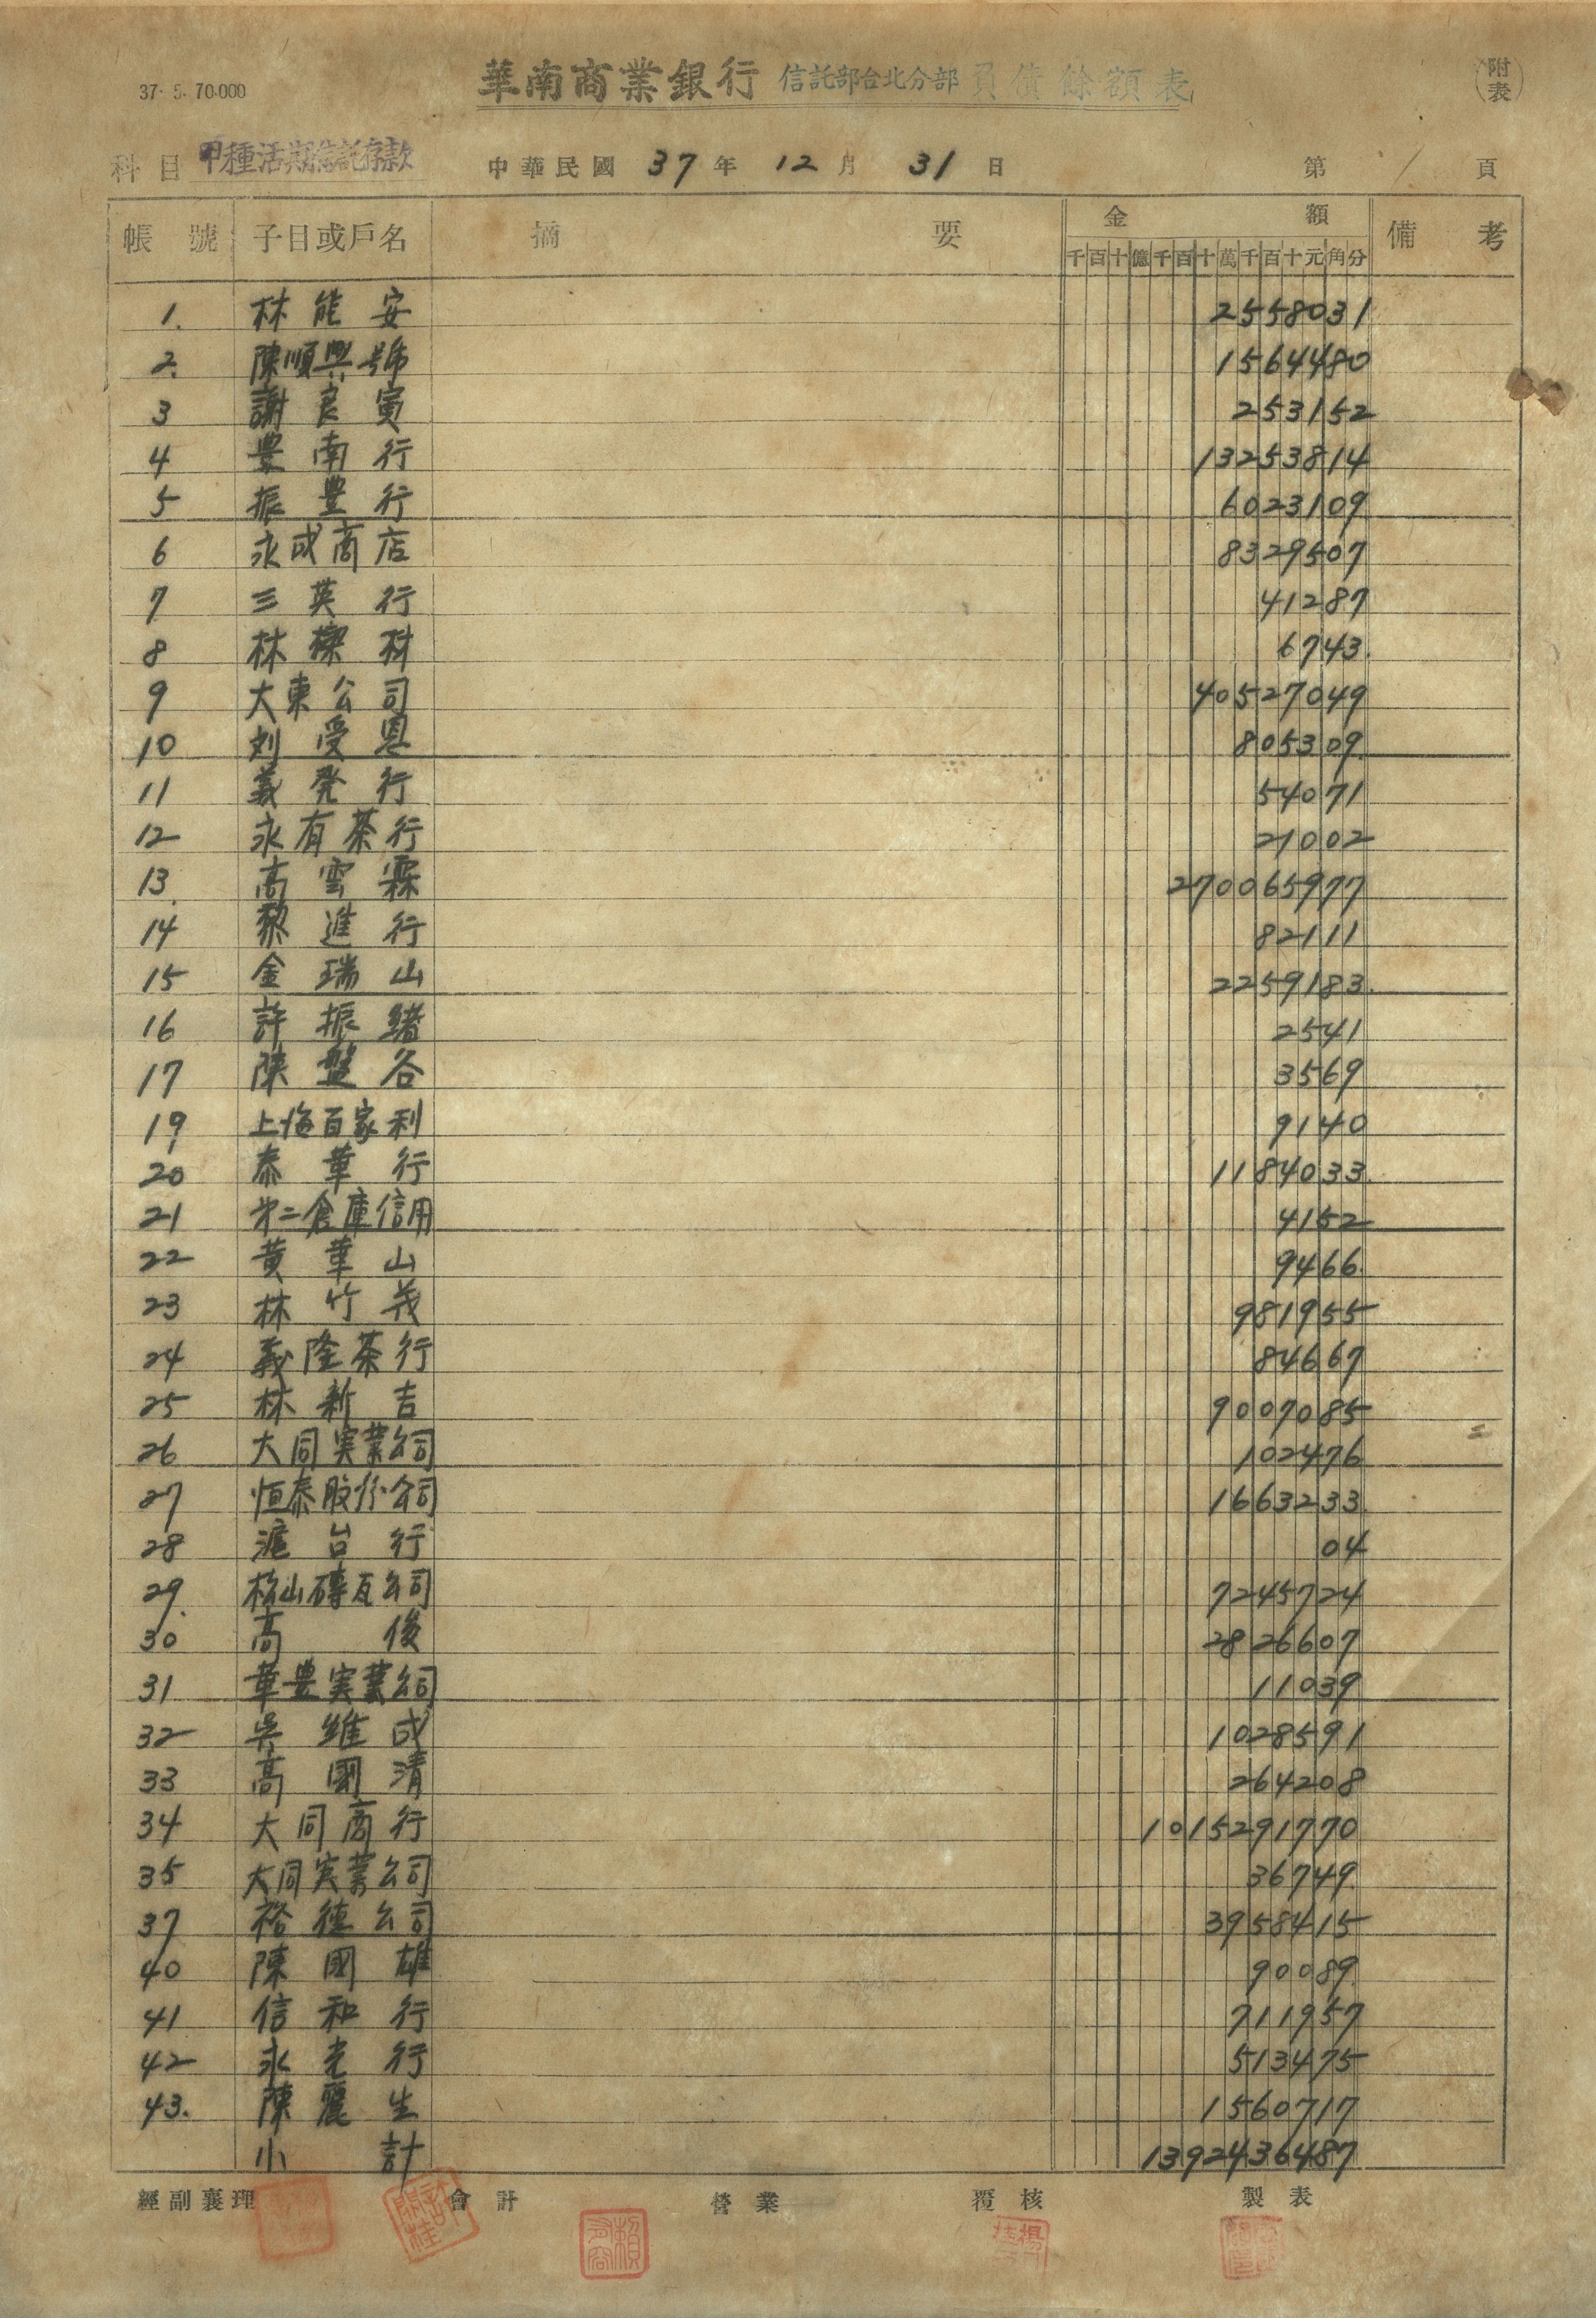 37. 5. 70.000
華南商業銀行 信託部台北分部 負債餘額表
(附表)
科目 甲種活期信託存款 中華民國 37 年 12 月 31 日 第 1 頁
帳號 子目或戶名 摘要 金額 備考
千百十億千百十萬千百十元角分
1. 林能安 2558031
2. 陳順興號 1564480
3 謝良寅 253152
4 豊南行 13253814
5 振豊行 6023109
6 永成商店 8329507
7 三英行 41287
8 林樑材 6743.
9 大東公司 40527049
10 刘受恩 805309.
11 義発行 54071
12 永有茶行 21002
13. 高雲霖 270065977
14 黎進行 82111
15 金瑞山 2259183.
16 許振緒 2541
17 陳盤谷 3569
19 上海百家利 9140
20 泰華行 1184033.
21 㐧二倉庫信用 4152
22 黄華山 9466.
23 林竹茂 981955
24 義隆茶行 84667
25 林新吉 9007085
26 大同実業公司 102476
27 恒泰股份公司 1663233.
28 滬台行 04
29. 松山磚瓦公司 7245724
30 高俊 2826607
31 華豊実業公司 11039
32 吳維成 1028591
33 高國清 264208
34 大同商行 10152917​70
35 大同実業公司 36749.
37 裕德公司 3958415
40 陳國雄 90089.
41 信和行 711957
42 永光行 513475
43. 陳麗生 1560717
小計 1392436487
經副襄理 會計 營業 覆核 製表